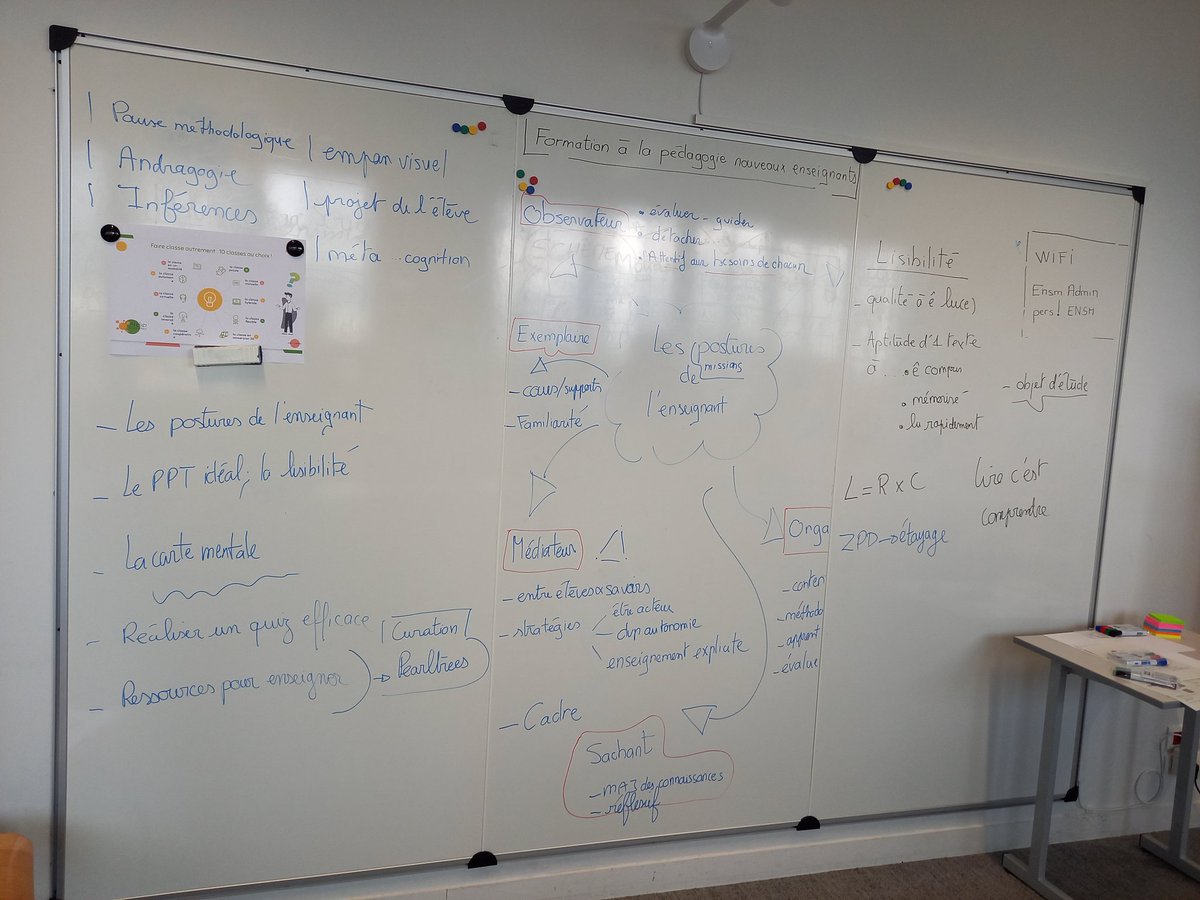 | Pause methodologique
| Andragogie
| Inférences
| empan visuel
| projet de l'élève
| méta .. cognition
Faire classe autrement : 10 classes au choix !
- Les postures de l'enseignant
- Le PPT idéal; la lisibilité
- La carte mentale
- Réaliser un quiz efficace
- Ressources pour enseigner
| Curation
→ Pearltrees
Formation à la pédagogie nouveaux enseignants
Observateur
• évaluer - guider
• détacher
• Attentif aux besoins de chacun
Les postures
missions
de
l'enseignant
Exemplaire
- cours/supports
- Familiarité
Médiateur /!
- entre élèves & savoirs
- stratégies
être acteur
dvp autonomie
enseignement explicite
- Cadre
Sachant
- MAJ des connaissances
- réflexif
Orga
- conten
- méthodo
- apprent
- évalue
Lisibilité
- qualité à ê lu(e)
- Aptitude d'1 texte
à ... • ê compris
• mémorisé
• lu rapidement
L = R x C
ZPD → étayage
WIFI
Ensm Admin
pers! ENSM
- objet d'étude
lire c'est
comprendre